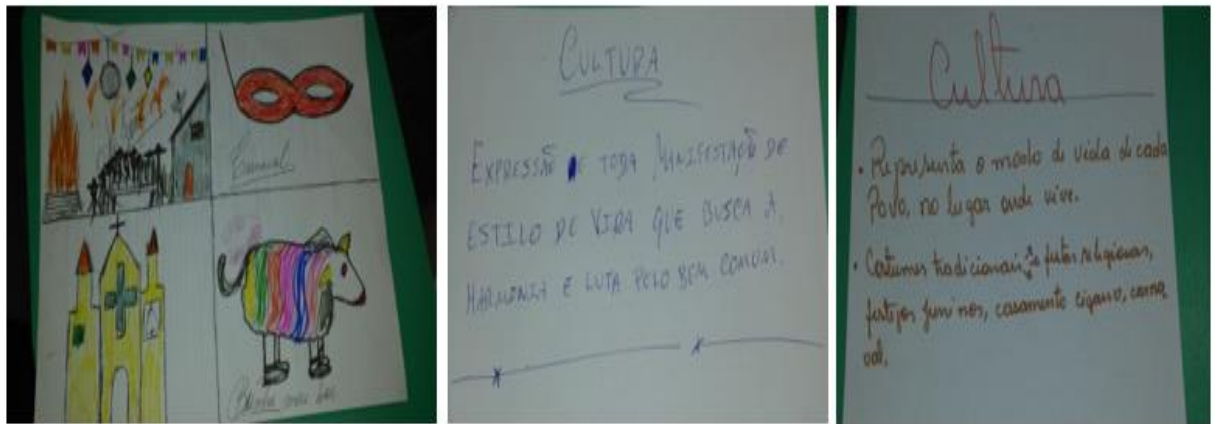 Carnaval
Bumba meu boi
CULTURA
EXPRESSÃO DE TODA MANIFESTAÇÃO DE
ESTILO DE VIDA QUE BUSCA A
HARMONIA E LUTA PELO BEM COMUM.
Cultura
• Representa o modo de vida de cada
Povo, no lugar onde vive.
• Costumes tradicionais festas religiosas,
festejos juninos, casamento cigano, carna
val.